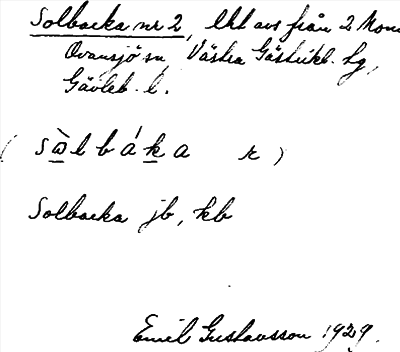 Solbacka nr 2, lht avs från 2 Mon
Ovansjö sn, Västra Gästrikl. tg,
Gävleb. l.
( sὼlbáka r )
Solbacka jb, kb
Emil Gustavsson 1929.